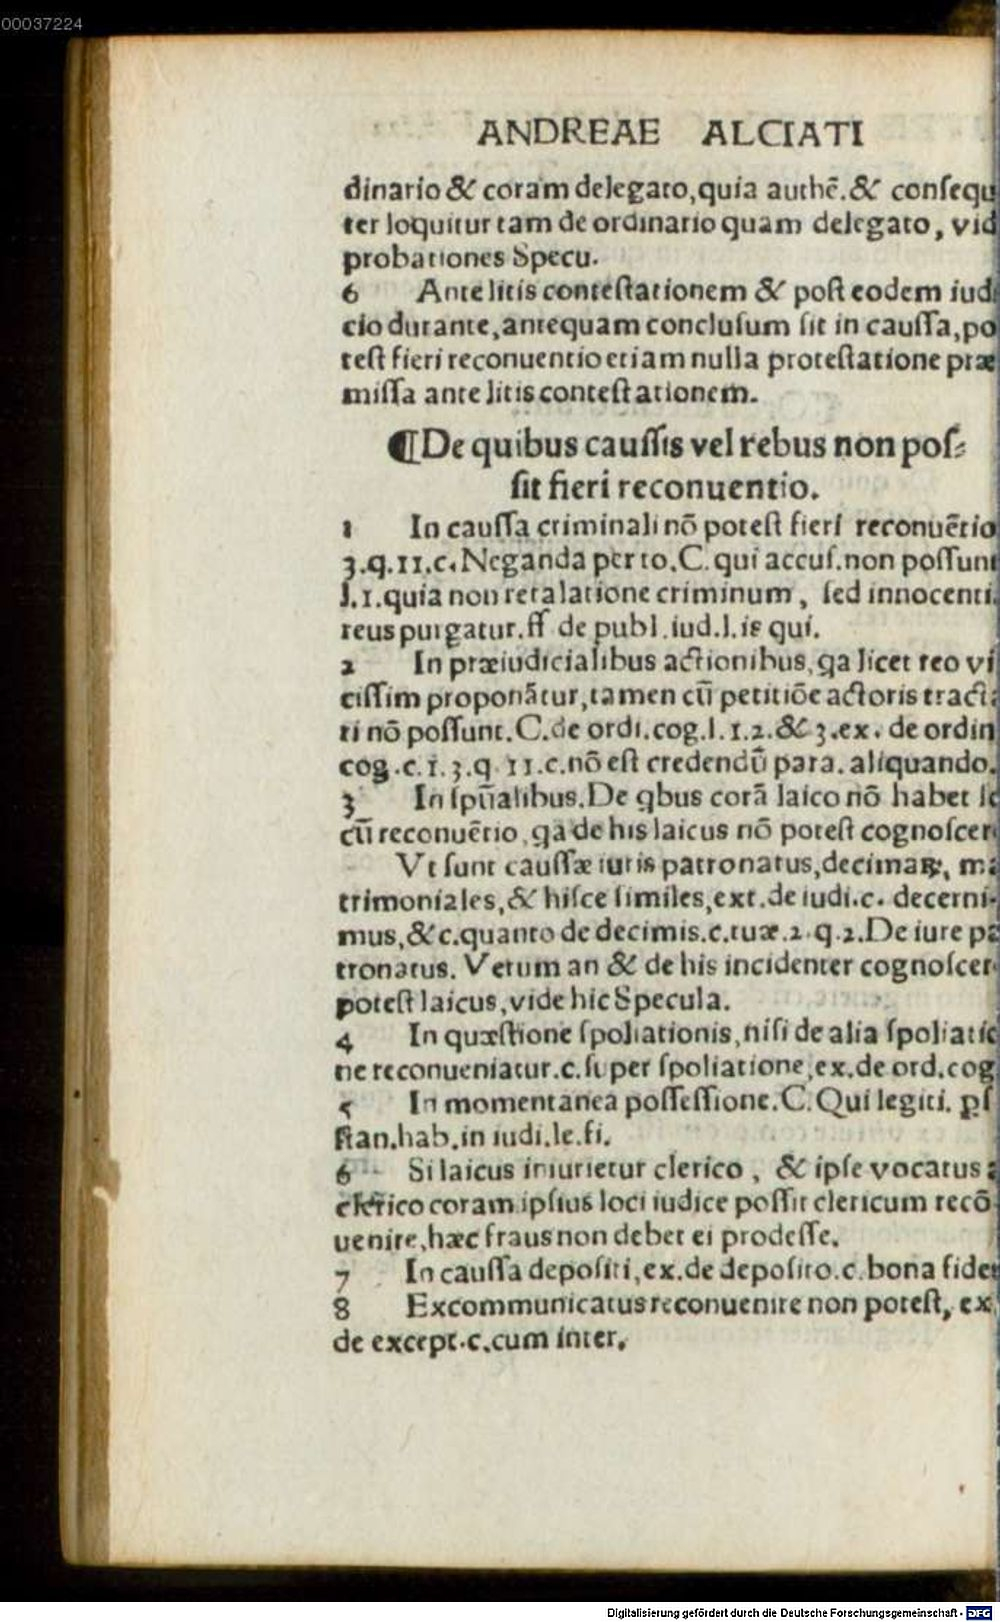 00037224
ANDREAE ALCIATI
dinario & coram delegato, quia authē. & consequ
ter loquitur tam de ordinario quam delegato, vid
probationes Specu.
6 Ante litis contestationem & post eodem iudi
cio durante, antequam conclusum sit in caussa, po
test fieri reconuentio etiam nulla protestatione præ
missa ante litis contestationem.
¶De quibus caussis vel rebus non pos⸗
sit fieri reconuentio.
1 In caussa criminali nō potest fieri reconuētio
3.q.11.c. Neganda per to. C. qui accus. non possunt
l.1. quia non retalatione criminum, sed innocenti
reus purgatur. ff de publ. iud. l. is qui.
2 In præiudicialibus actionibus, qa licet reo vi
cissim proponātur, tamen cū petitiōe actoris tracta
ri nō possunt. C. de ordi. cog. l. 1.2. & 3. ex. de ordin
cog. c. 1. 3. q. 11. c. nō est credendū para. aliquando.
3 In spūalibus. De qbus corā laico nō habet lo
cū reconuētio, qa de his laicus nō potest cognoscer
Vt sunt caussæ iuris patronatus, decimaꝝ, ma
trimoniales, & hisce similes, ext. de iudi. c. decerni-
mus, & c. quanto de decimis. c. tuæ. 2. q. 2. De iure pa
tronatus. Verum an & de his incidenter cognoscer
potest laicus, vide hic Specula.
4 In quæstione spoliationis, nisi de alia spoliatio
ne reconueniatur. c. super spoliatione, ex. de ord. cog
5 In momentanea possessione. C. Qui legiti. ps
stan. hab. in iudi. le. fi.
6 Si laicus iniurietur clerico, & ipse vocatus a
clerico coram ipsius loci iudice possit clericum recō
uenire, hæc fraus non debet ei prodesse.
7 In caussa depositi, ex. de deposito. c. bona fides
8 Excommunicatus reconuenire non potest, ex.
de except. c. cum inter.
Digitalisierung gefördert durch die Deutsche Forschungsgemeinschaft - DFG